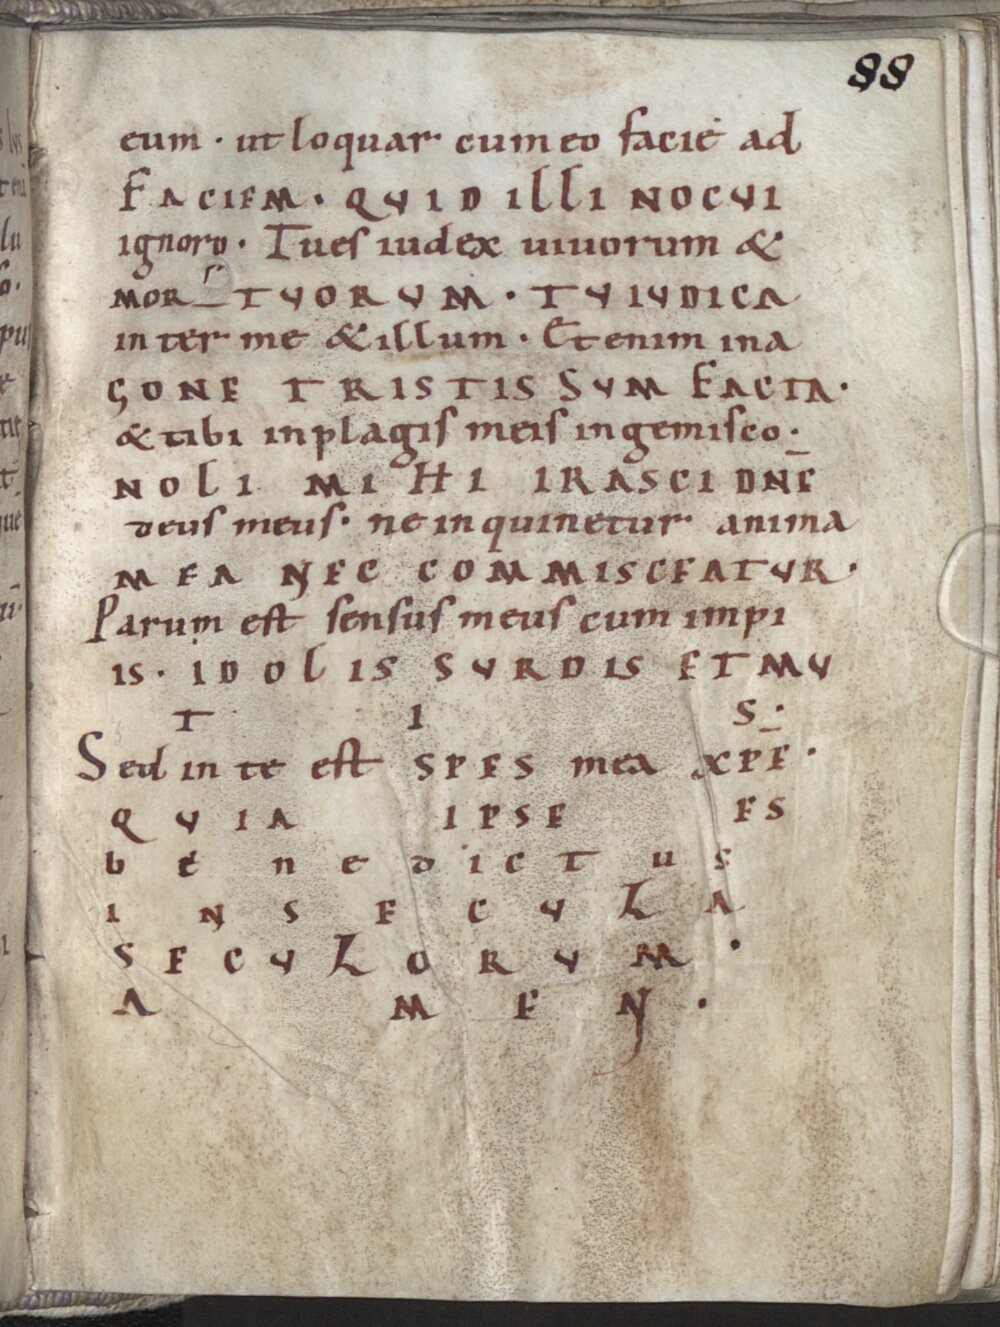 88
eum · ut loquar cum eo facie ad
FACIEM · QVID illi NOCVI
ignoro · Tu es iudex uiuorum &
MORTVORVM · TV IVDICA
inter me & illum · Et enim in a
GONE TRISTIS SVM FACTA ·
& tibi in plagis meis ingemisco ·
NOLI MIHI IRASCI DN̄E
deus meus · ne inquinetur anima
MEA NEC COMMISCEATVR ·
Parum est sensus meus cum impi
IS · IDOLIS SVRDIS ET MV
T I S ·
Sed in te est SPES mea XP̄E ·
QVIA IPSE ES
benedictus
IN SECVLA
SECVLORVM ·
AMEN ·